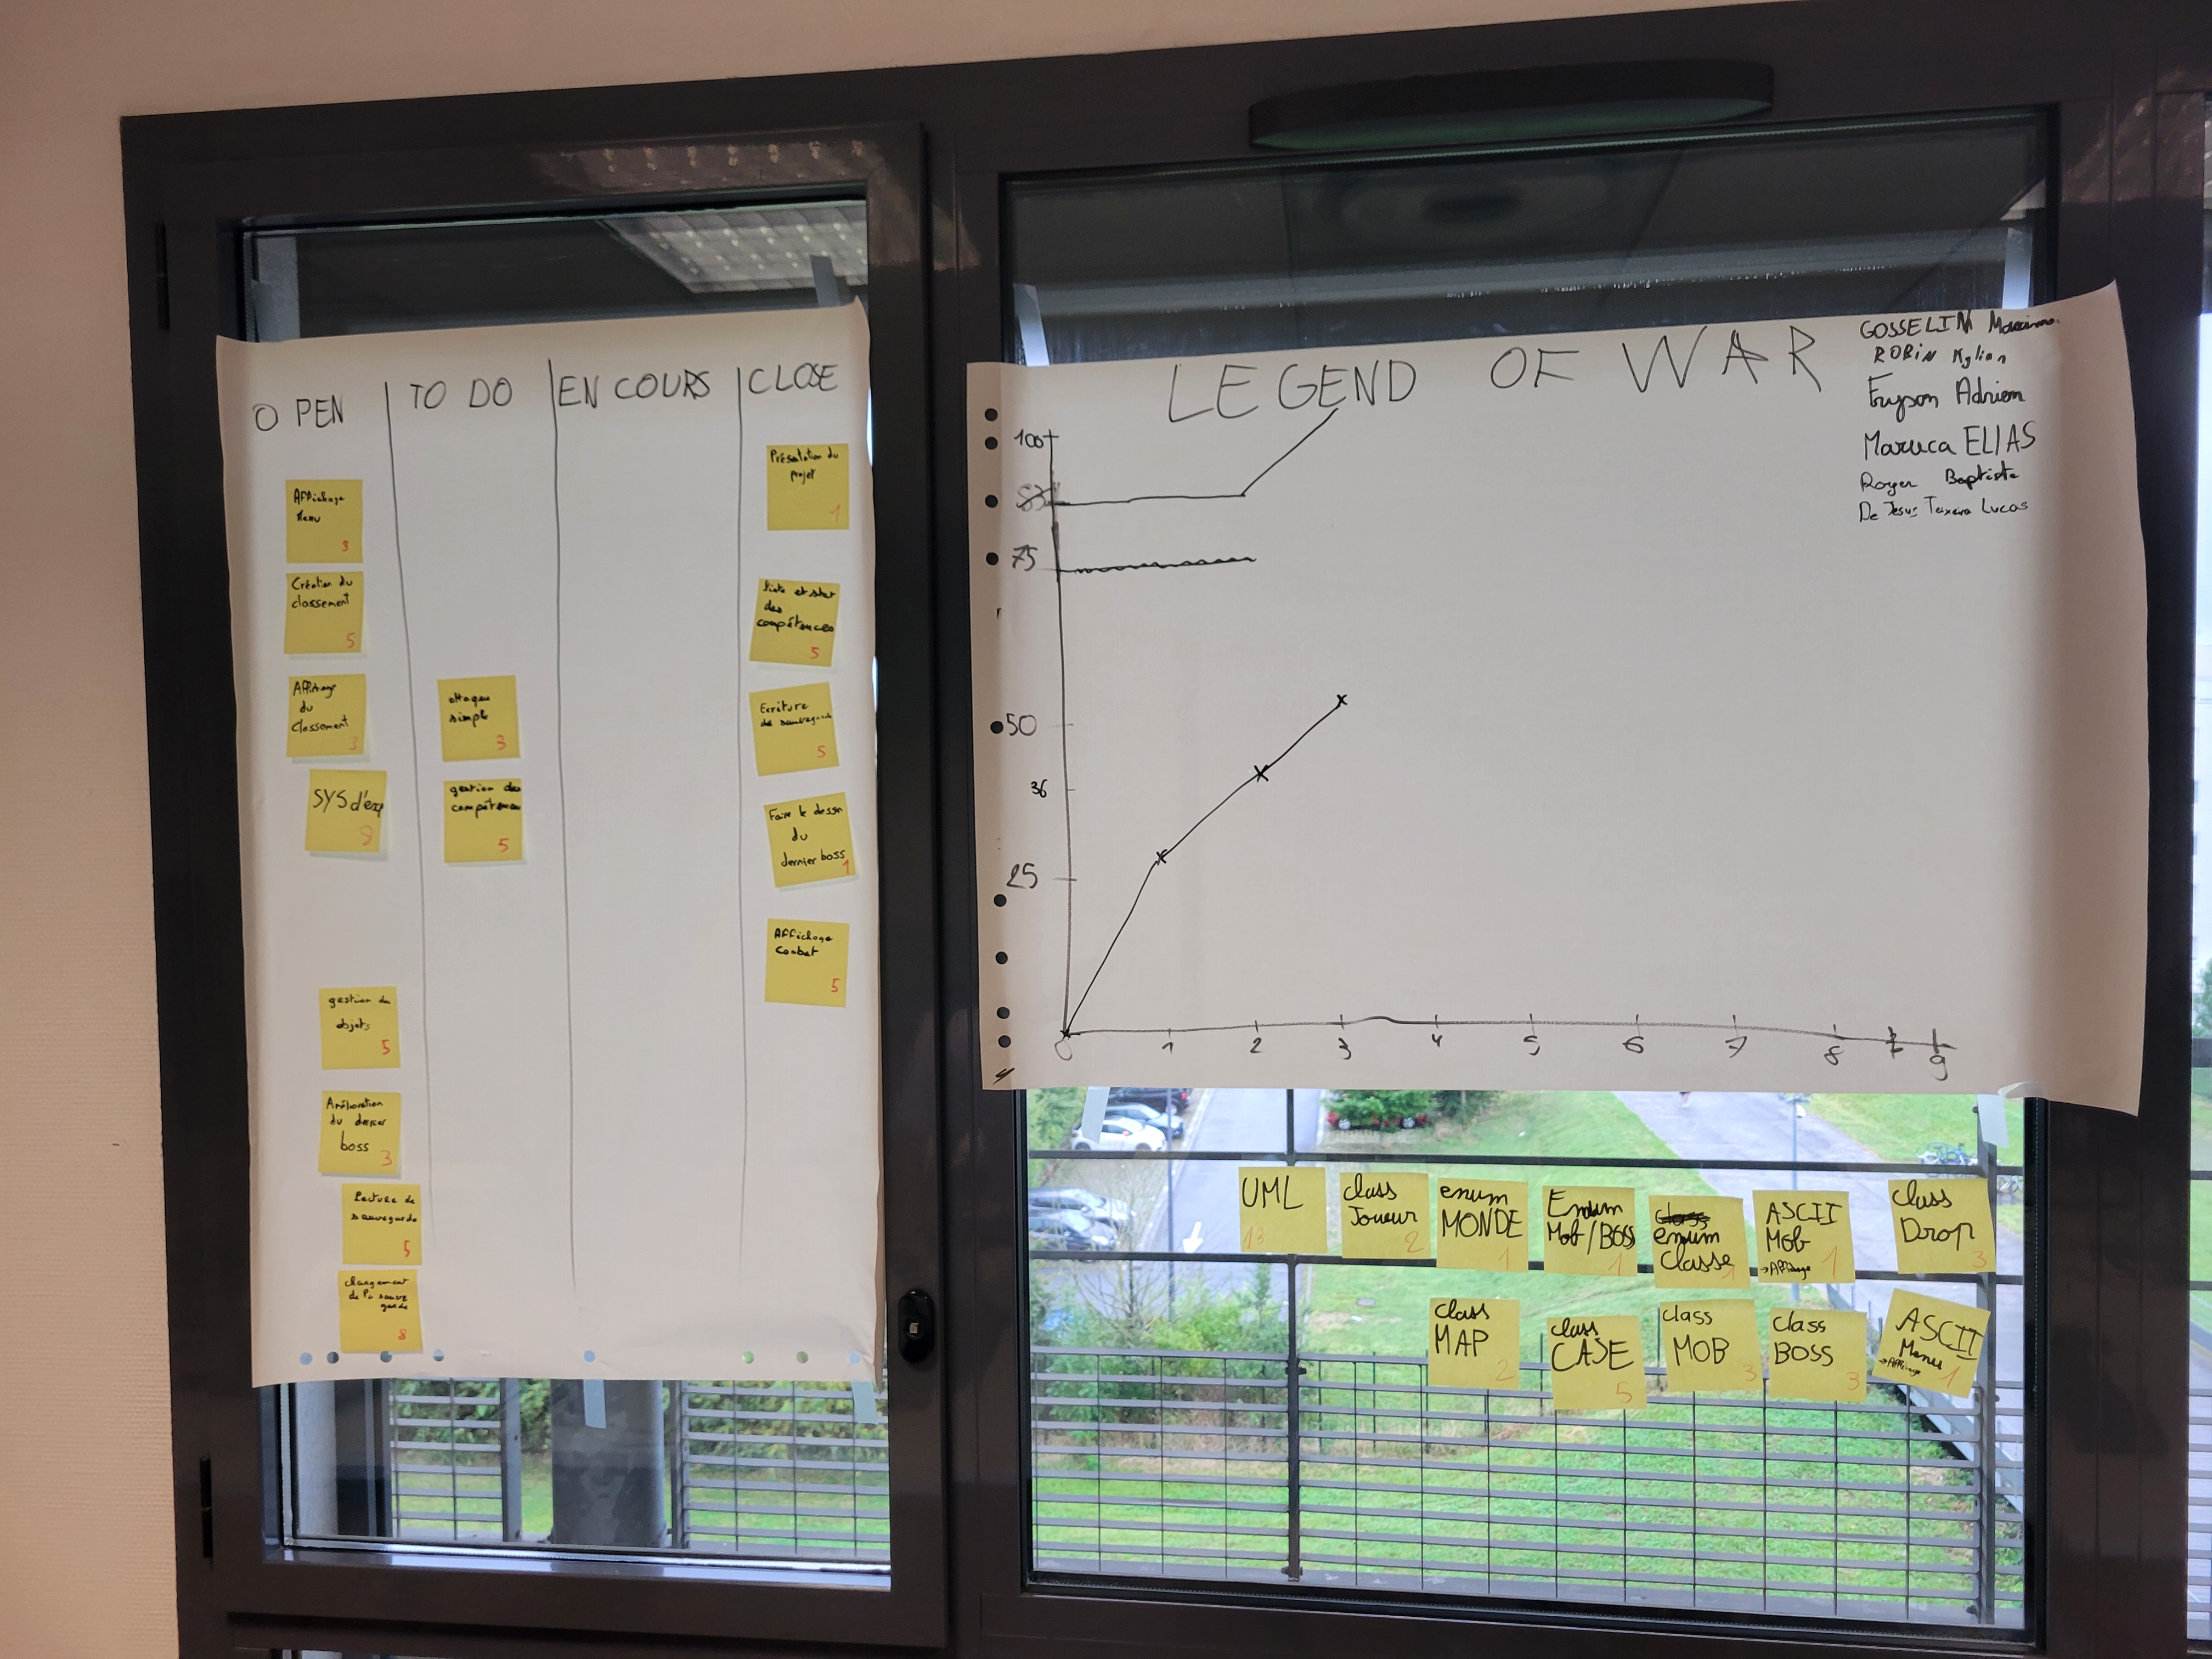 O PEN
TO DO
EN COURS
CLOSE
Affichage
Menu
3
Création du
classement
5
Affichage
du
Classement
3
SYS d'exp
8
gestion des
objets
5
Amélioration
du dernier
boss
3
Lecture de
sauvegarde
5
chargement
de la sauve
garde
8
attaque
simple
3
gestion des
compétences
5
Présentation du
projet
1
liste et stat
des
compétences
5
Ecriture
de sauvegarde
5
Faire le dessin
du
dernier boss
1
Affichage
combat
5
LEGEND OF WAR
GOSSELIN Maxime
ROBIN Kylian
Adrien
Maruca ELIAS
Royer Baptiste
De Jesus Teixeira Lucas
100
83
75
50
36
25
0 1 2 3 4 5 6 7 8 9
UML
13
class
Joueur
2
enum
MONDE
1
Enum
Mob/BOSS
1
class
enum
Classe
1
ASCII
Mob
→Affichage
1
class
Drop
3
class
MAP
2
class
CASE
5
class
MOB
3
class
BOSS
3
ASCII
Menu
→Affichage
1